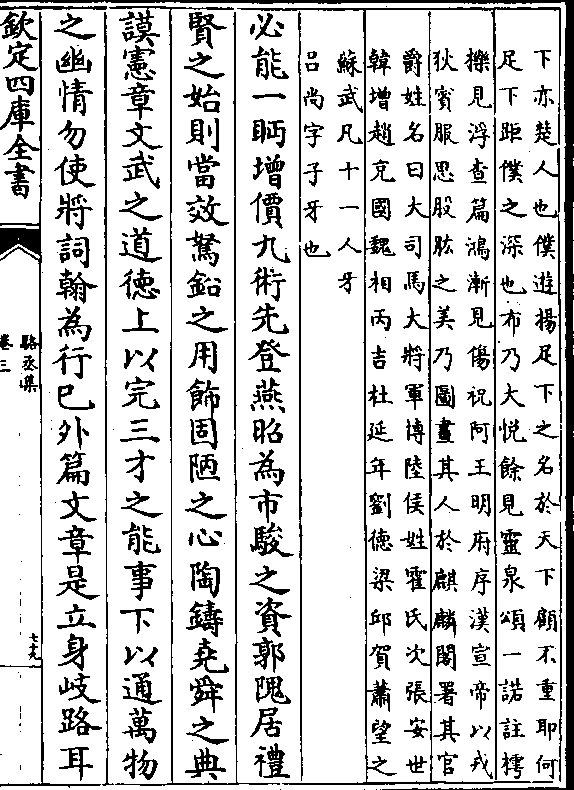 下亦楚人也僕遊揚足下之名於天下顧不重耶何
足下距僕之深也布乃大悅餘見靈泉頌一諾註樗
櫟見浮查篇鴻漸見傷祝阿王明府序漢宣帝以戎
狄賓服思股肱之美乃圖畫其人於麒麟閣署其官
爵姓名曰大司馬大將軍博陸侯姓霍氏次張安世
韓增趙充國魏相丙吉杜延年劉德梁邱賀蕭望之
蘇武凡十一人牙
呂尚字子牙也
必能一眄增價九術先登燕昭為市駿之資郭隗居禮
賢之始則當效駑鉛之用飾固陋之心陶鑄堯舜之典
謨憲章文武之道德上以完三才之能事下以通萬物
之幽情勿使將詞翰為行巳外篇文章是立身岐路耳
欽定四庫全書
駱丞集
卷三
七十九